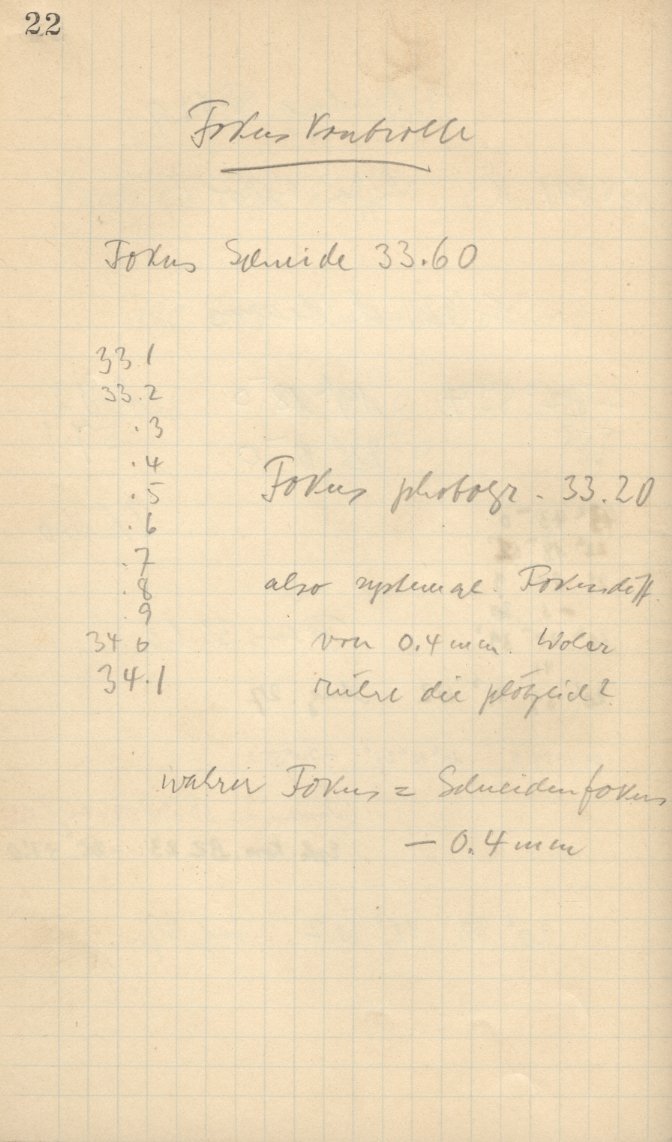 22
Fokus Kontrolle
Fokus Schneide 33.60
33.1
33.2
.3
.4
.5
.6
.7
.8
9
34 0
34.1
Fokus photogr. 33.20
also systemat. Fokusdiff.
von 0.4 mm. Woher
rührt die plötzlich?
wahrer Fokus = Schneidenfokus
— 0.4 mm